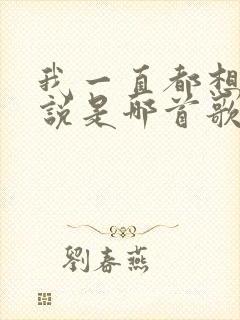 我一直都想
說是哪首歌
劉春燕